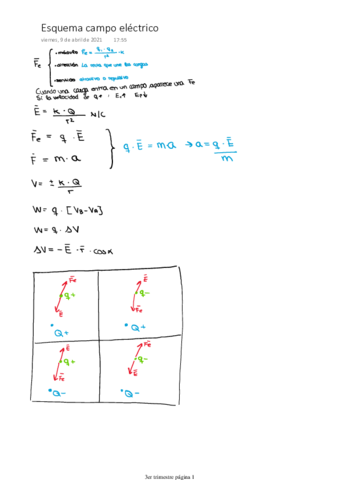 Esquema campo eléctrico
viernes, 9 de abril de 2021 17:55
F̄e
-módulo Fe = q₁·q₂ / r² ·K
-dirección La recta que une las cargas
-sentido atractiva o repulsiva
Cuando una carga entra en un campo, aparece una Fe
Si la velocidad
Ē = K·Q / r² N/C
F̄e = q·Ē
F̄ = m·a
q·Ē = m·a → a = q·Ē / m
V = ± K·Q / r
W = q·[VB-VA]
W = q·ΔV
ΔV = -Ē·r̄·cosα
F̄e
q+
Ē
Q+
Ē
q-
F̄e
Q+
Ē
q+
F̄e
Q-
F̄e
q-
Ē
Q-
3er trimestre página 1